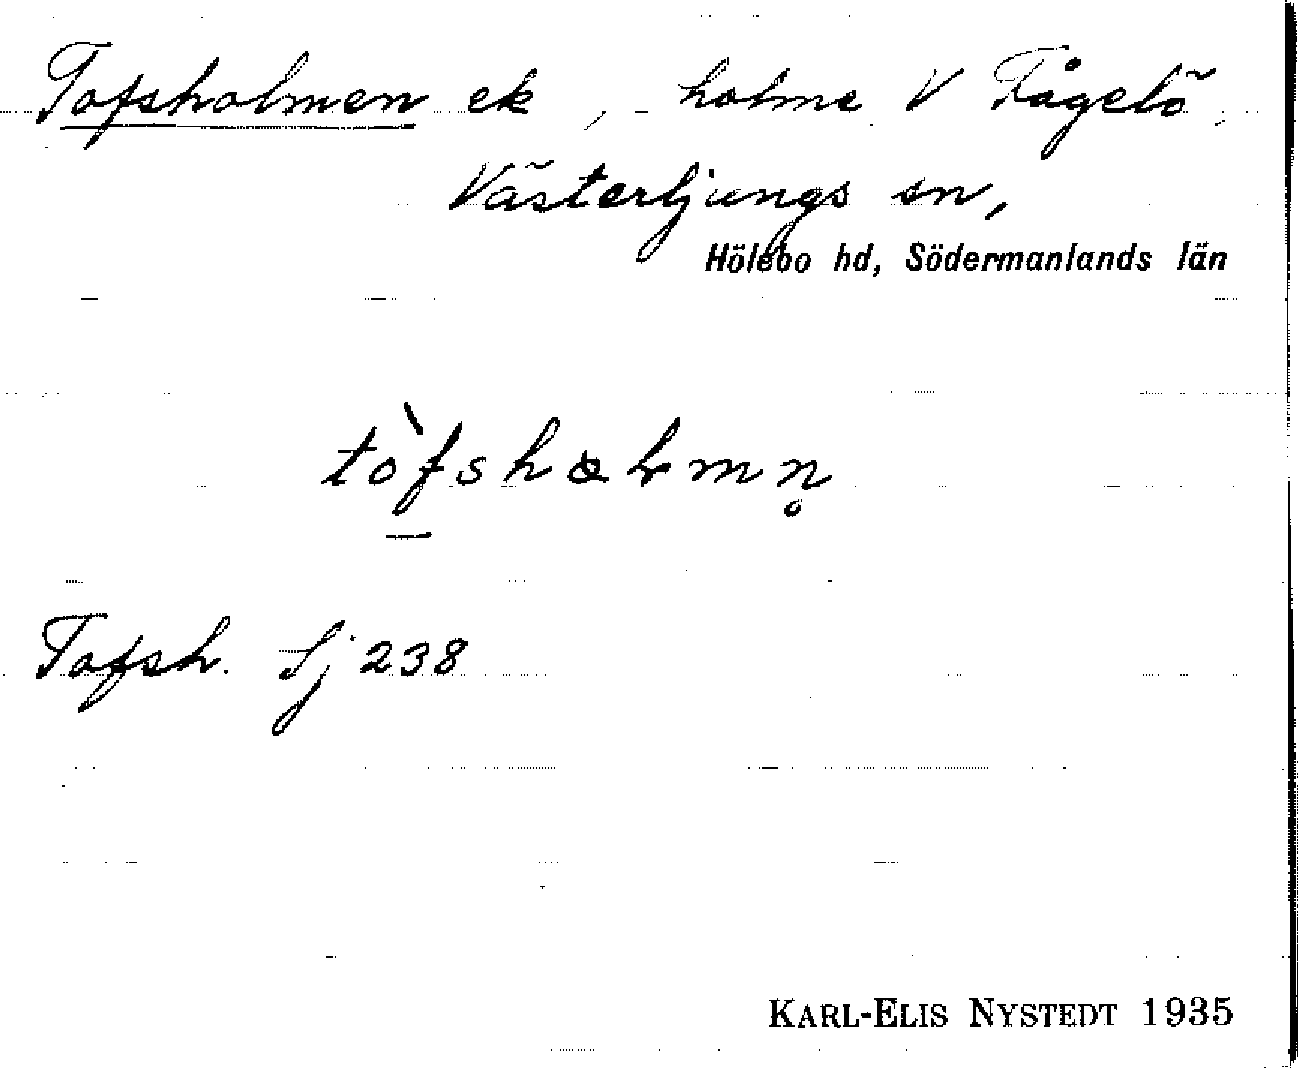 Tofsholmen ek, holme V Fågelö,
Västerljungs sn,
Hölebo hd, Södermanlands län
tòfshɑlmn̥
Tofsh. Sj 238
KARL-ELIS NYSTEDT 1935